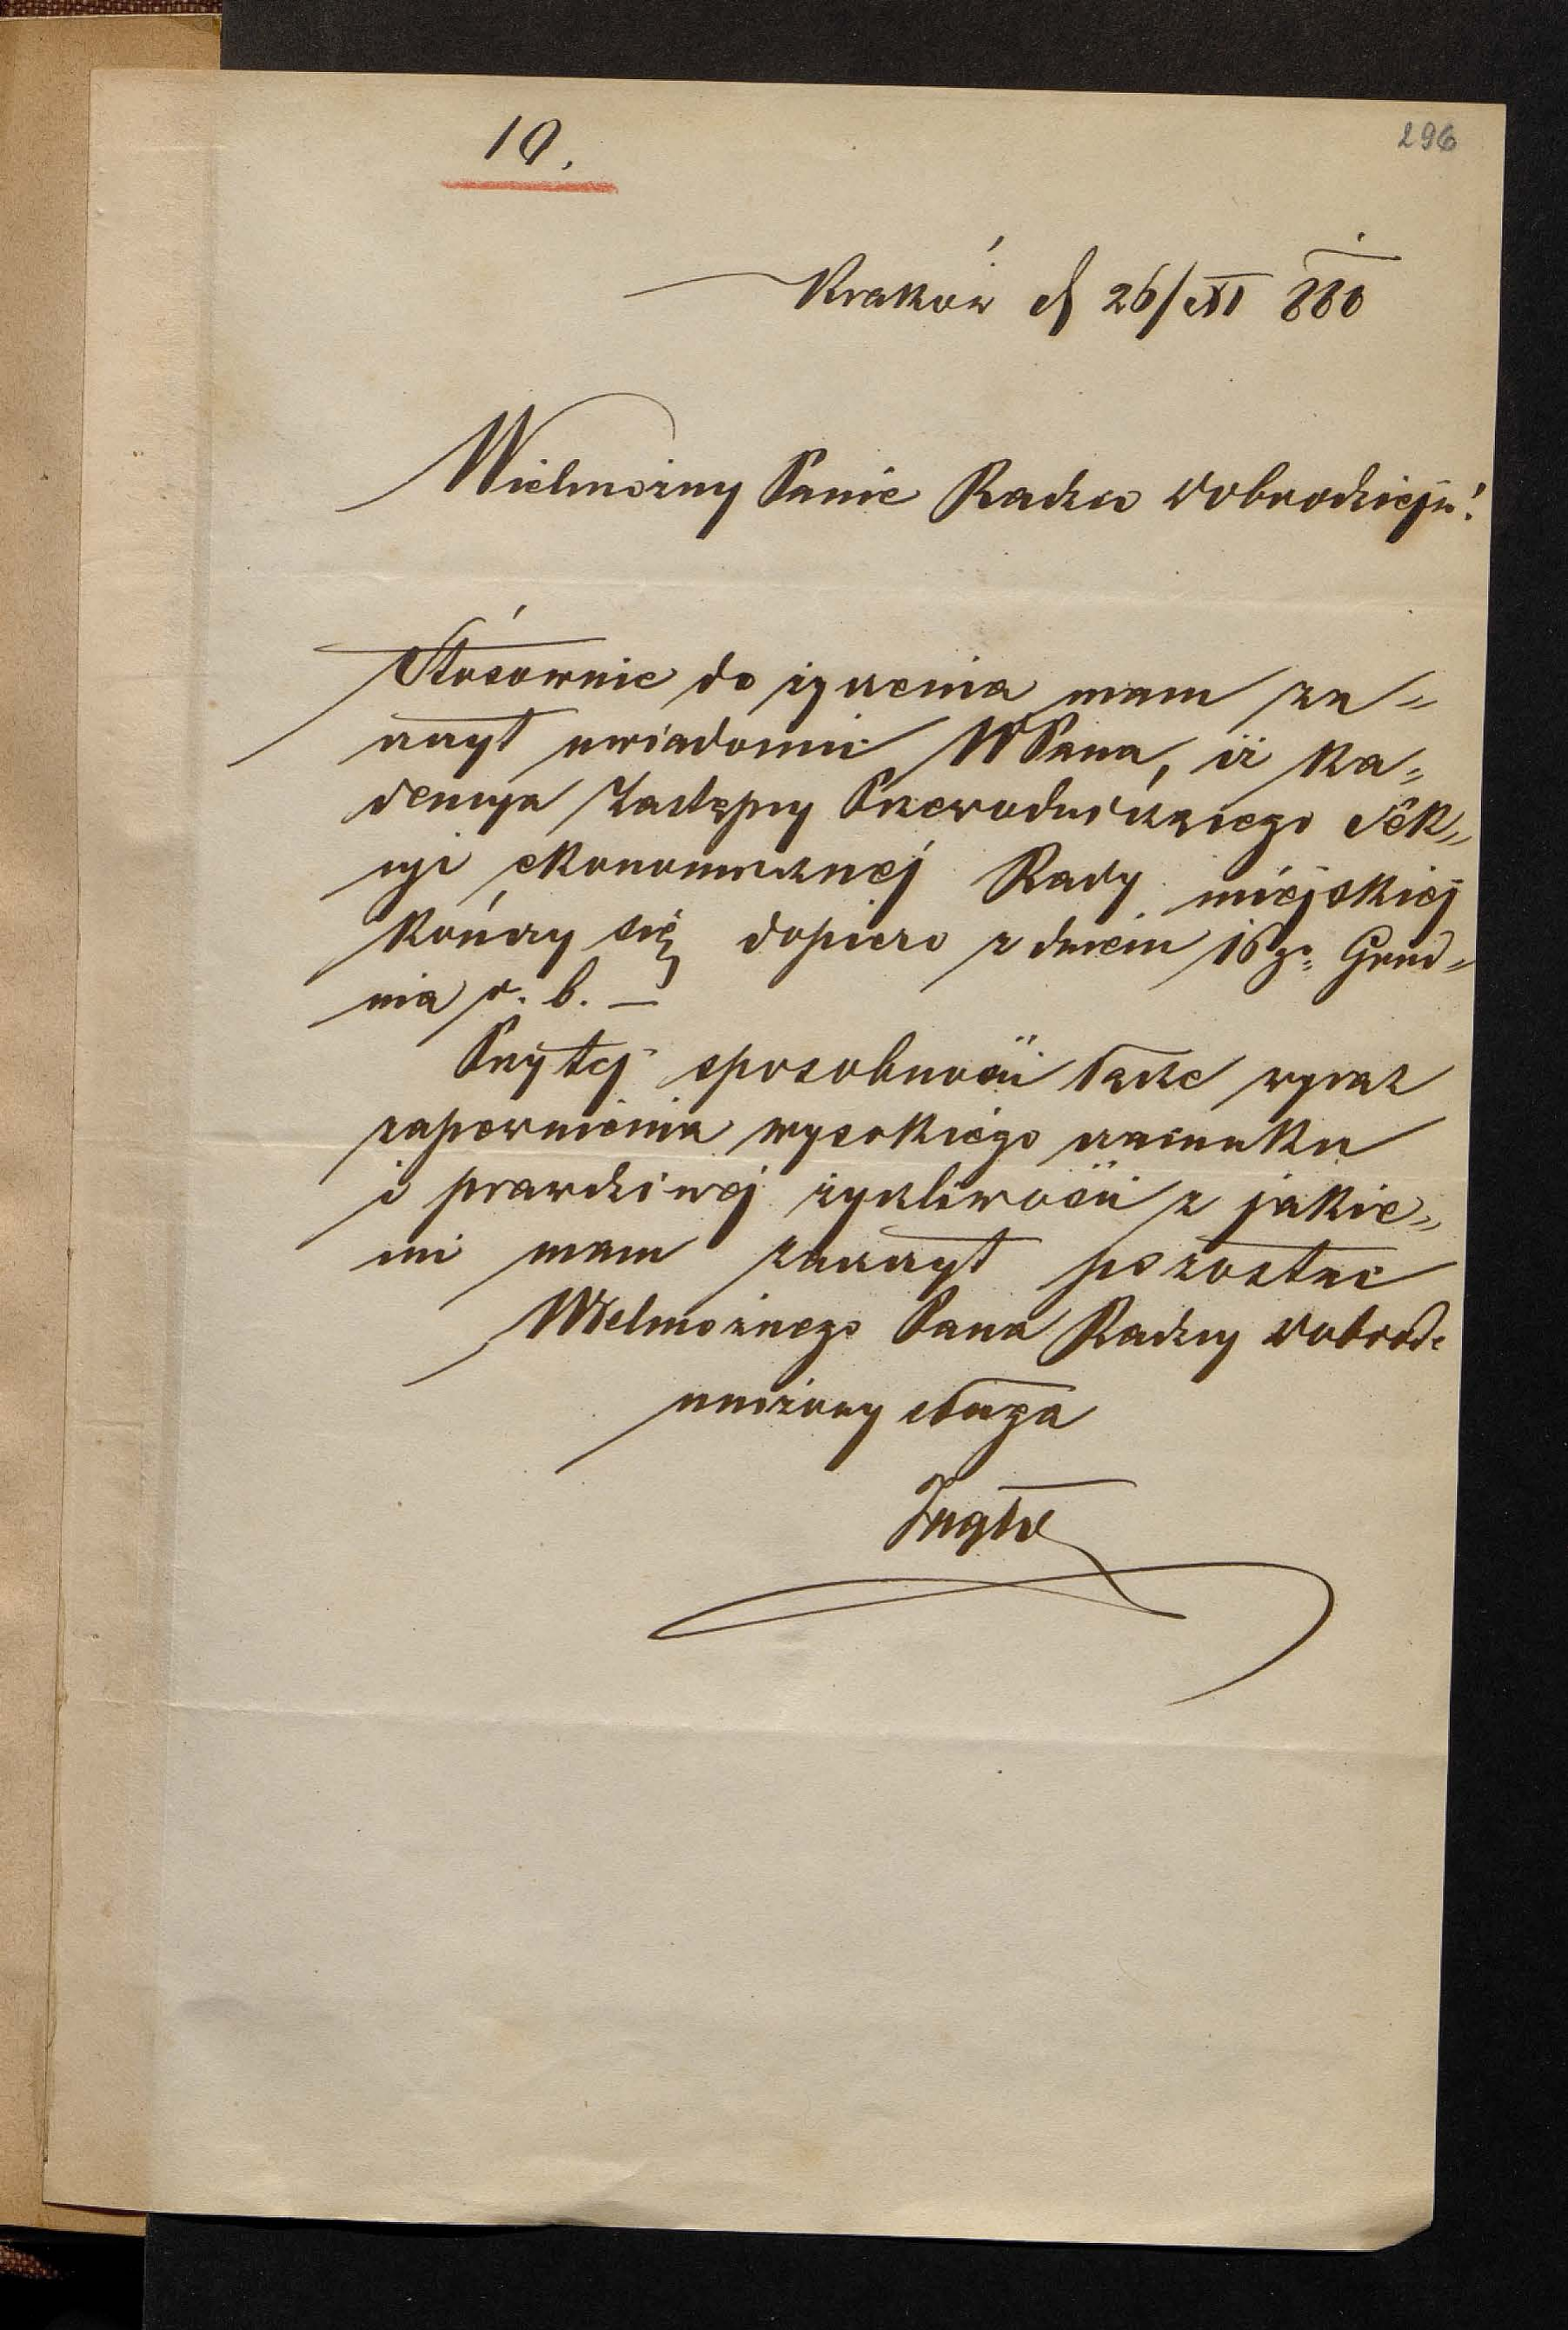 10.
296
Kraków d 26/XI 880
Wielmożny Panie Radco Dobrodzieju!
Stósownie do życzenia mam za=
szczyt uwiadomić WPana, iż Ka=
dencya Zastępcy Przewodniczącego Sek=
cyi ekonomicznéj Rady miejskiej
kończy się dopiero z dniem 16go Grud=
nia r. b. —
Przy tej sposobności łączę wyraz
zapewnienia wysokiego szacunku
i prawdziwej życzliwości z jakie=
mi mam zaszczyt pozostać
Wielmożnego Pana Radcy Dobrodz
uniżony sługa